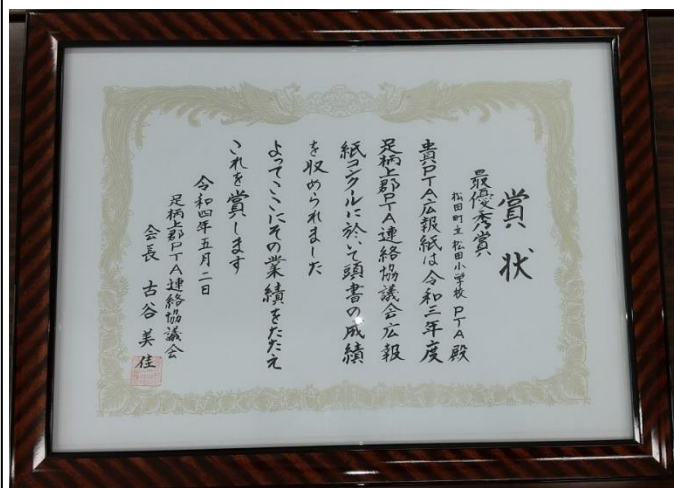 賞状
最優秀賞
松田町立松田小学校 PTA 殿
貴PTA広報紙は令和三年度
足柄上郡PTA連絡協議会広報
紙コンクールに於いて頭書の成績
を収められました
よってここにその業績をたたえ
これを賞します
令和四年五月二日
足柄上郡PTA連絡協議会
会長 古谷美佳